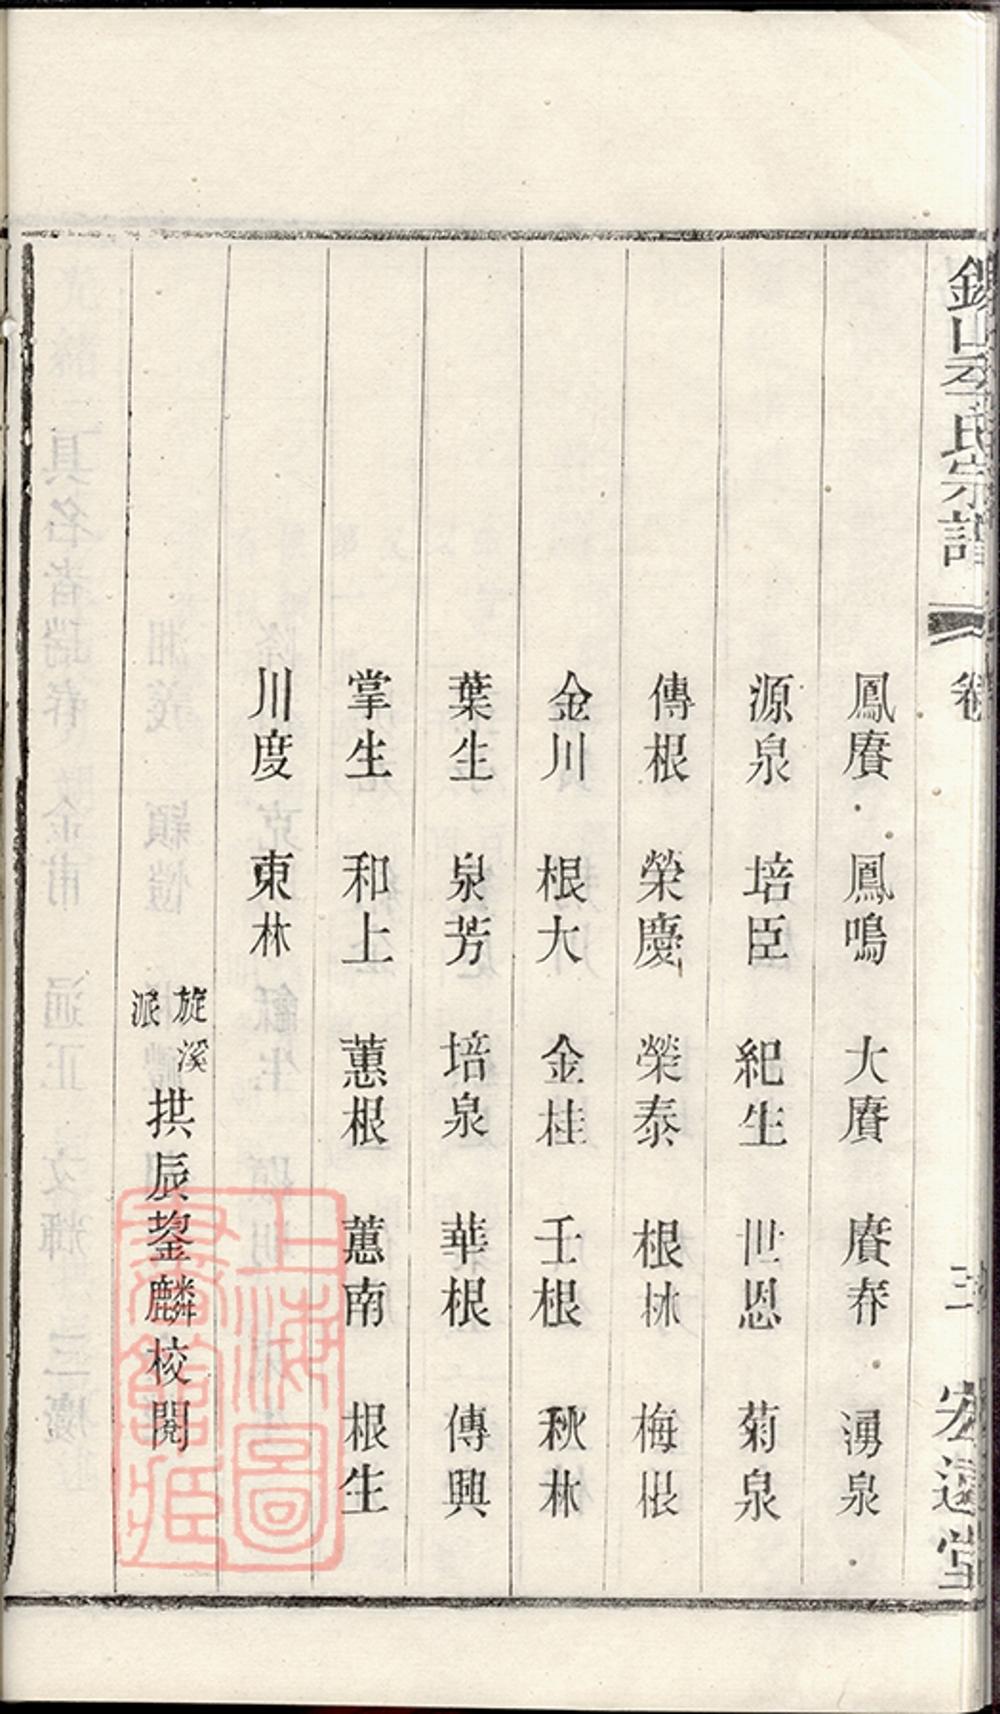 錫山李氏宗譜 卷 三 宏遠堂
鳳賡 鳳鳴 大賡 賡春 湧泉
源泉 培臣 紀生 世恩 菊泉
傳根 榮慶 榮泰 根林 梅根
金川 根大 金桂 壬根 秋林
葉生 泉芳 培泉 華根 傳興
掌生 和上 蕙根 蕙南 根生
川度 東林
旋溪派 拱辰鋆麟校閱
上海圖書館藏